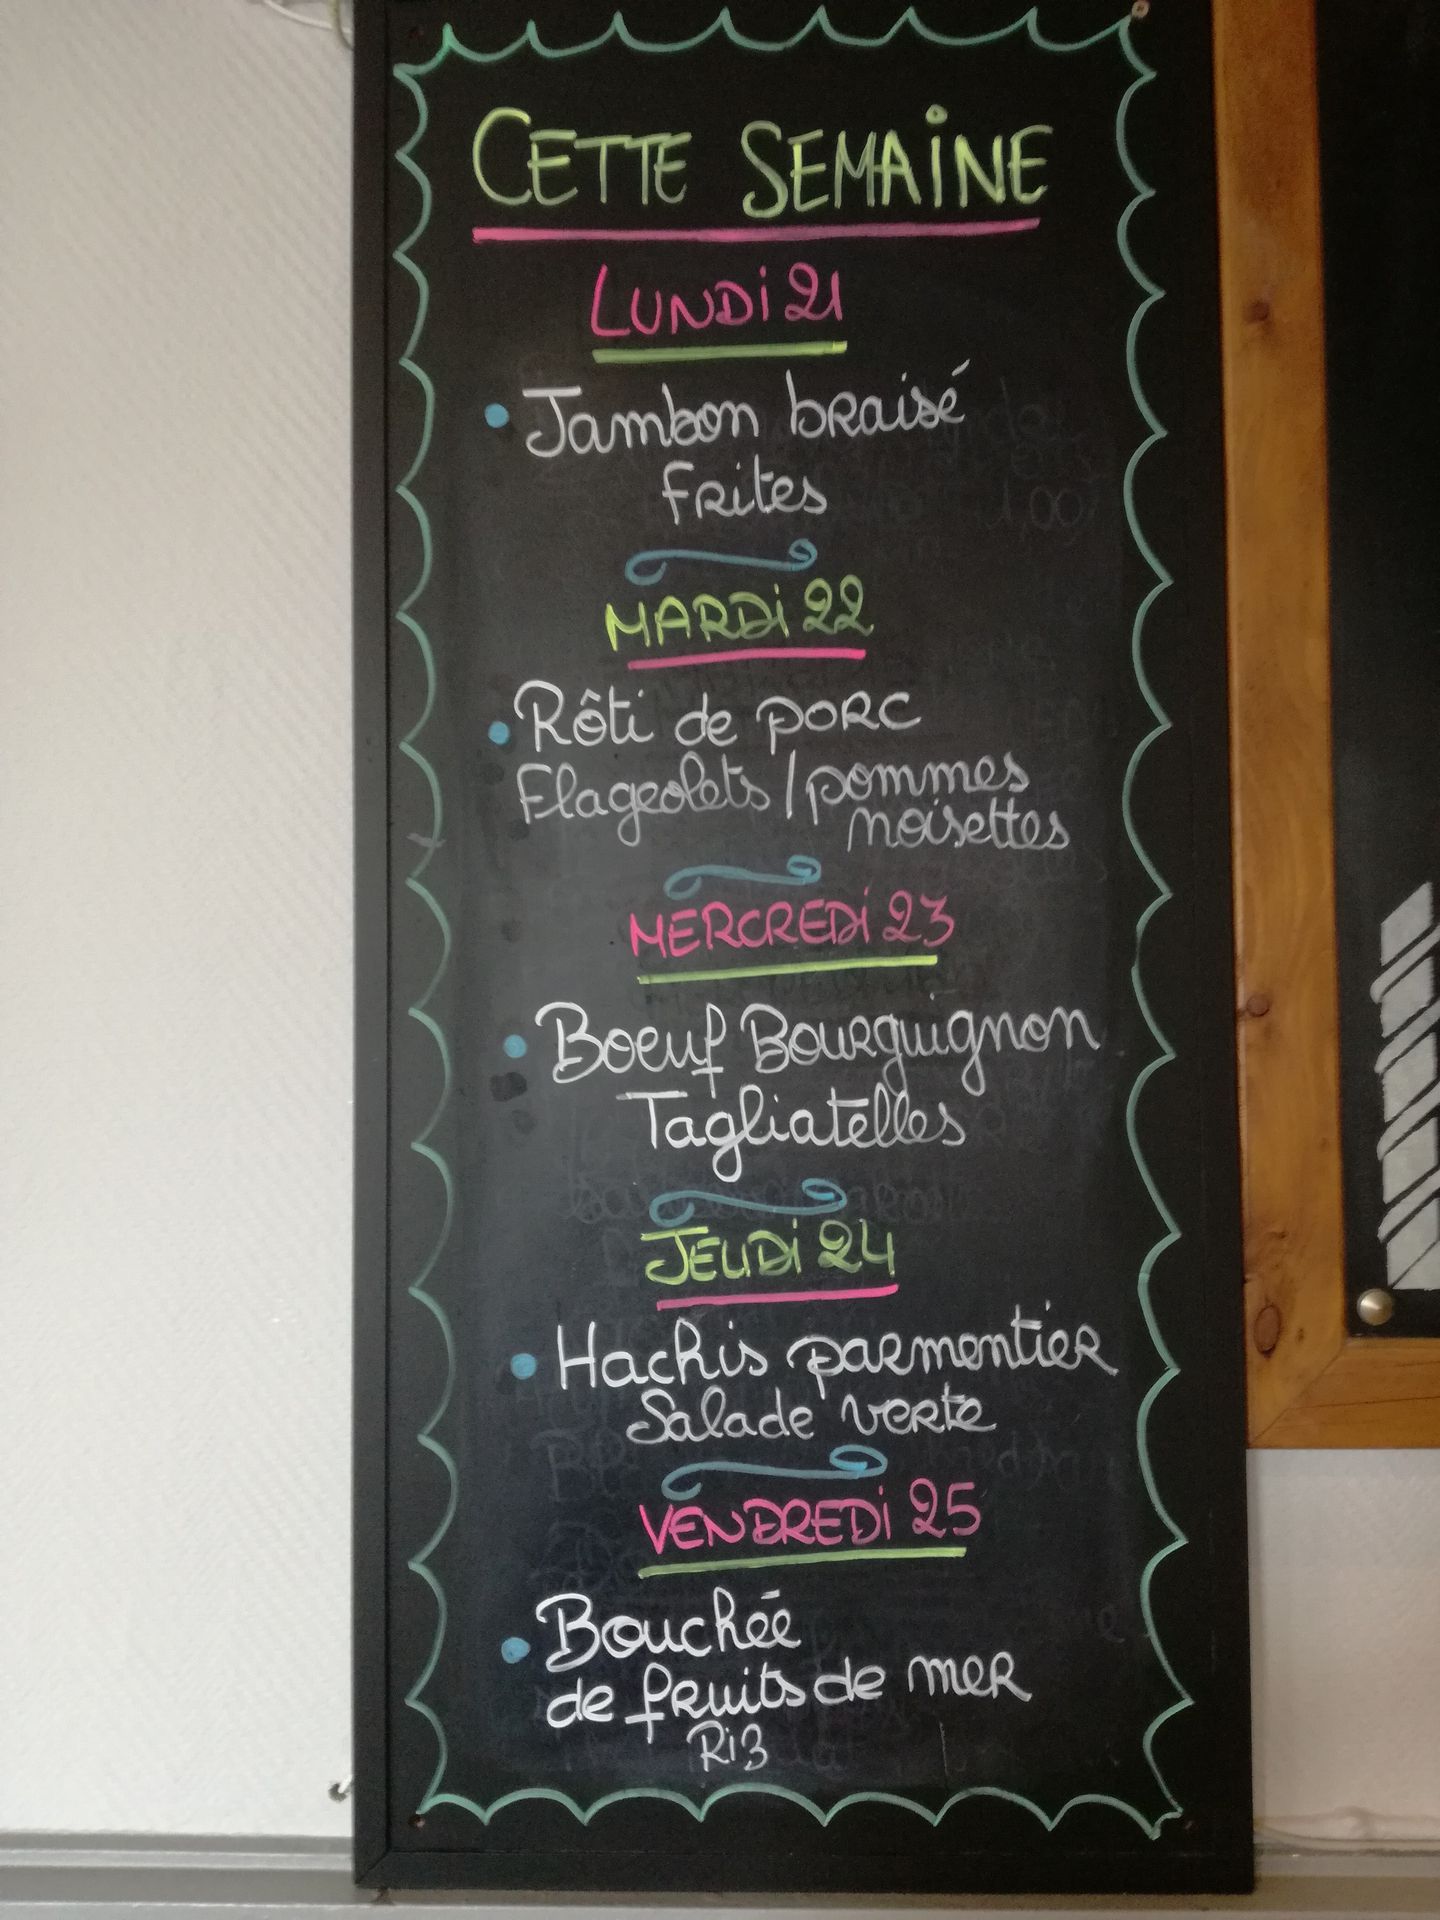 CETTE SEMAINE
LUNDI 21
• Jambon braisé
frites
MARDI 22
• Rôti de porc
Flageolets / pommes
noisettes
MERCREDI 23
• Boeuf Bourguignon
Tagliatelles
JEUDI 24
• Hachis parmentier
Salade verte
VENDREDI 25
• Bouchée
de fruits de mer
Riz